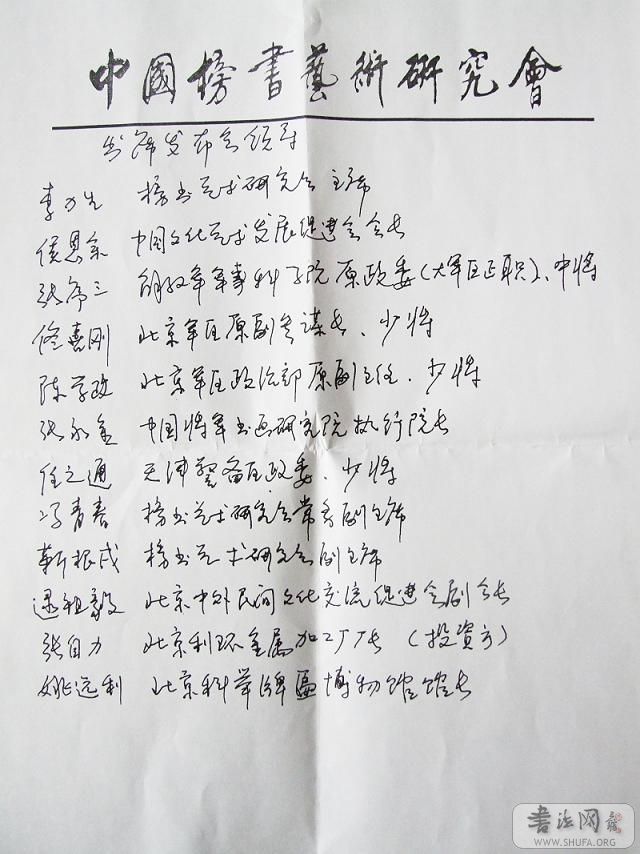 中國榜書藝術研究會
出席发布会领导
李力生 榜书艺术研究会 主席
侯恩余 中国文化艺术发展促进会会长
张序三 解放军军事科学院原政委(大军区正职)、中将
佟喜刚 北京军区原副参谋长、少将
陈学政 北京军区政治部原副主任、少将
张永金 中国将军书画研究院执行院长
任之通 天津警备区政委、少将
冯青春 榜书艺术研究会常务副主席
靳根成 榜书艺术研究会副主席
逯祖毅 北京中外民间文化交流促进会副会长
张自力 北京利环金属加工厂厂长 (投资方)
姚远利 北京科举匾额博物馆馆长
書法网
WWW.SHUFA.ORG